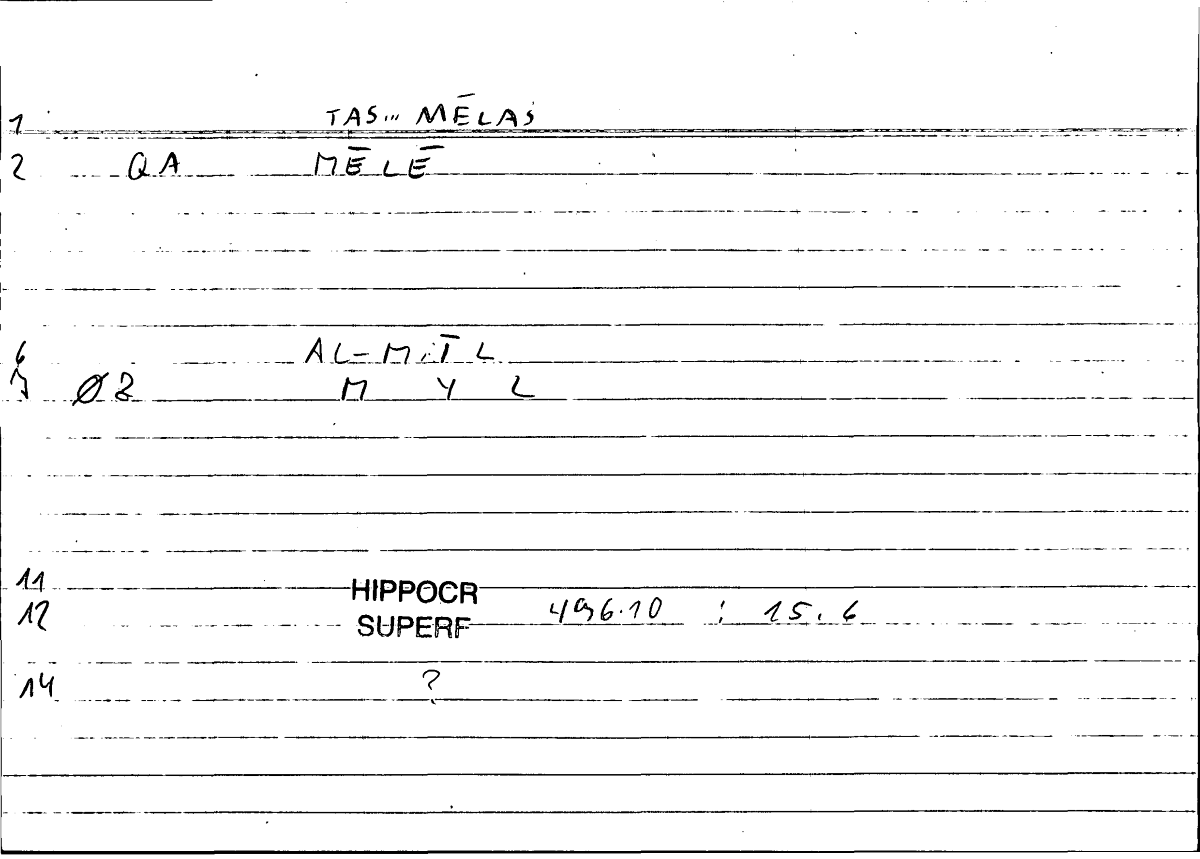 1 TAS... MĒLAS
2 QA MĒLĒ
6 AL-MĪL
7 Ø2 M Y L
11 HIPPOCR
12 SUPERF 496.10 : 15.6
14 ?